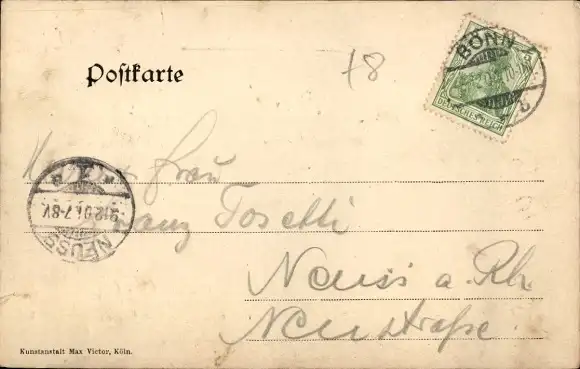 Postkarte
+8
BONN
5
DEUTSCHES REICH
Frau
Franz Tosetti
NEUSS
9.12.04.7-8V.
Neuss a. Rh.
Neustraße.
Kunstanstalt Max Victor, Köln.